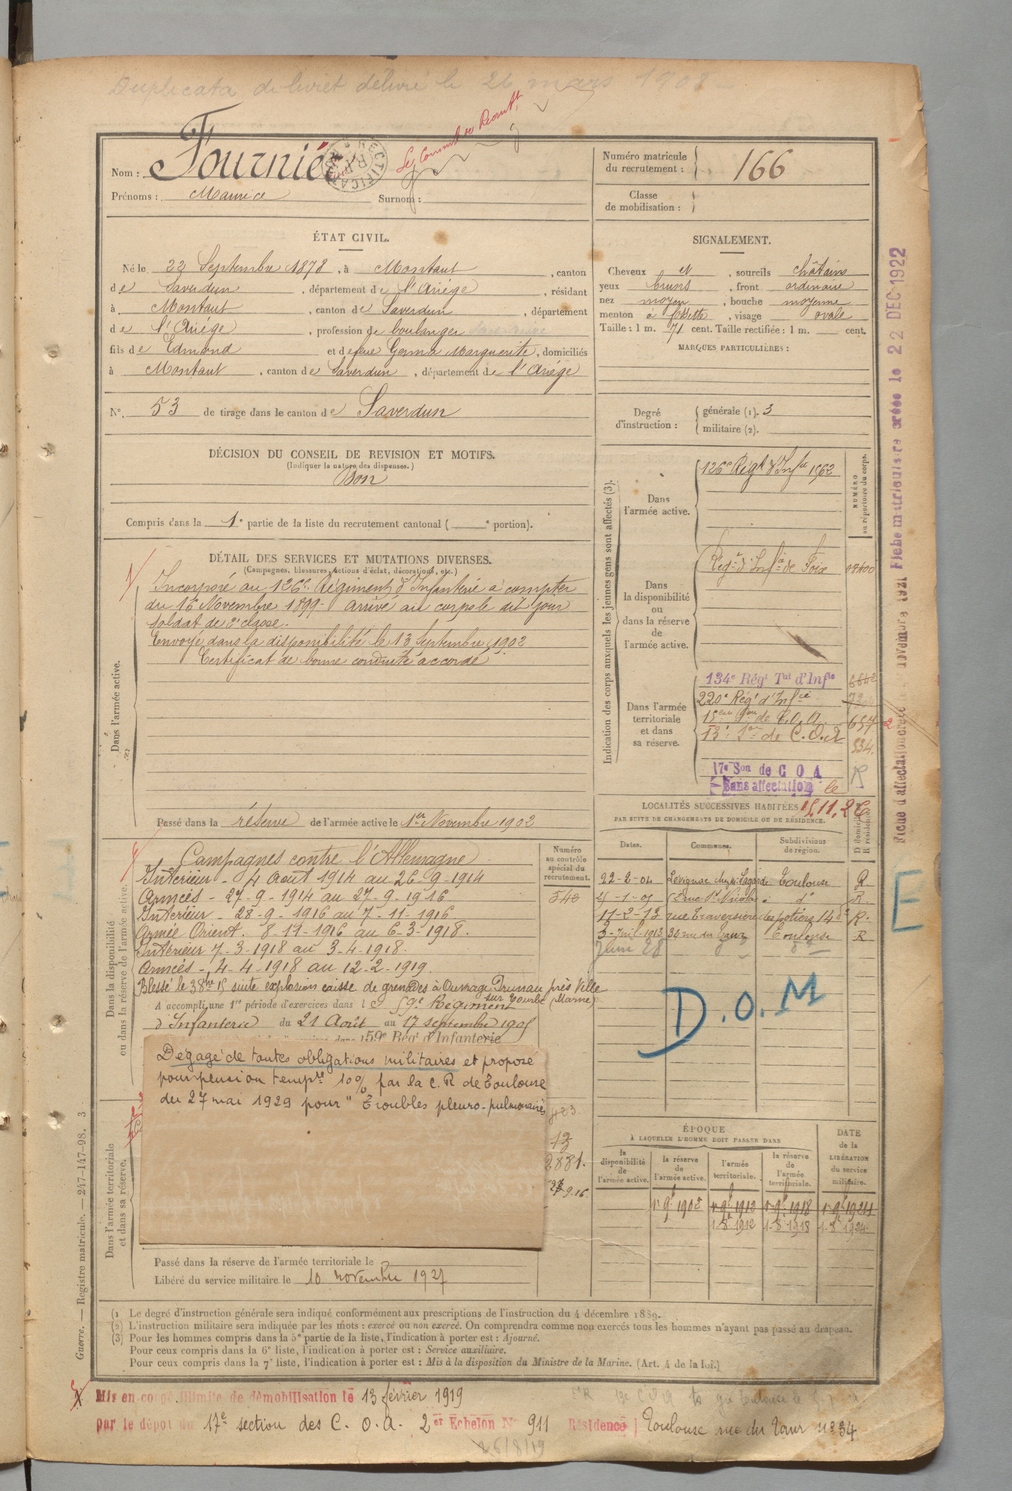 Duplicata de livret délivré le 26 mars 1908
Nom : Fournié
Prénoms : Maurice Surnom :
Numéro matricule du recrutement : 166
Classe de mobilisation :
ÉTAT CIVIL.
Né le 22 Septembre 1878, à Montaut, canton
de Saverdun, département de l'Ariège, résidant
à Montaut, canton de Saverdun, département
de l'Ariège, profession de boulanger
fils de Edmond et de feue Germa Marguerite, domiciliés
à Montaut, canton de Saverdun, département de l'Ariège
N° 53 de tirage dans le canton de Saverdun
SIGNALEMENT.
Cheveux et, sourcils châtains
yeux bruns, front ordinaire
nez moyen, bouche moyenne
menton à fossette, visage ovale
Taille : 1 m. 71 cent. Taille rectifiée : 1 m. cent.
MARQUES PARTICULIÈRES :
Degré d'instruction : générale (1). 3
militaire (2).
DÉCISION DU CONSEIL DE REVISION ET MOTIFS.
(Indiquer la nature des dispenses.)
Bon
Compris dans la 1e partie de la liste du recrutement cantonal ( e portion).
DÉTAIL DES SERVICES ET MUTATIONS DIVERSES.
(Campagnes, blessures, actions d'éclat, décorations, etc.)
Dans l'armée active.
Incorporé au 126e Régiment d'Infanterie à compter
du 16 Novembre 1899 arrivé au corps le dit jour
soldat de 2e classe.
Envoyé dans la disponibilité le 13 Septembre 1902
Certificat de bonne conduite accordé
Passé dans la réserve de l'armée active le 1er Novembre 1902
Indication des corps auxquels les jeunes gens sont affectés (3).
NUMÉRO au répertoire du corps.
Dans l'armée active.
126e Régt d'Infie 1562
Dans la disponibilité ou dans la réserve de l'armée active.
Régt d'Infie de Foix
Dans l'armée territoriale et dans sa réserve.
134e Régt Tal d'Infie
220e Régt d'Infie
17e Son de C O A
Sans affectation le 15.11.26
LOCALITÉS SUCCESSIVES HABITÉES
PAR SUITE DE CHANGEMENTS DE DOMICILE OU DE RÉSIDENCE.
Dates. Communes. Subdivisions de région.
22-2-04 Toulouse R
R
17-2-12 rue Traversière des potiers 14 R.
3-Juil-1913 30 rue du Taur Toulouse R
Juin 28
D.O.M
E
Dans la disponibilité ou dans la réserve de l'armée active.
Numéro au contrôle spécial du recrutement.
540
Campagnes contre l'Allemagne
Intérieur - 4 Août 1914 au 26-9-1914
Armées - 27-9-1914 au 27-9-1916
Intérieur - 28-9-1916 au 7-11-1916
Armée Orient. 8-11-1916 au 6-3-1918.
Intérieur 7-3-1918 au 3-4-1918.
Armées - 4-4-1918 au 12-2-1919.
Blessé le 3 8bre 15 suite explosion caisse de grenades à Ouvrage Prunau près Ville
sur Tourbe (Marne)
A accompli une 1re période d'exercices dans le 59e Régiment
d'Infanterie du 21 Août au 17 septembre 1905
59e Régt d'Infanterie
Dégagé de toutes obligations militaires et proposé
pour pension tempre 10% par la C.R de Toulouse
du 27 mai 1929 pour "Troubles pleuro-pulmonaires
Dans l'armée territoriale et dans sa réserve.
Passé dans la réserve de l'armée territoriale le
Libéré du service militaire le 10 novembre 1927
ÉPOQUE
À LAQUELLE L'HOMME DOIT PASSER DANS
la disponibilité de l'armée active. la réserve de l'armée active. l'armée territoriale. la réserve de l'armée territoriale.
DATE de la LIBÉRATION du service militaire.
1r 9e 1902 1r 9e 1912 1r 9e 1918 1r 9e 1924
1-8-1912 1-8-1918 1-8-1924
(1) Le degré d'instruction générale sera indiqué conformément aux prescriptions de l'instruction du 4 décembre 1889.
(2) L'instruction militaire sera indiquée par les mots : exercé ou non exercé. On comprendra comme non exercés tous les hommes n'ayant pas passé au drapeau.
(3) Pour les hommes compris dans la 5e partie de la liste, l'indication à porter est : Ajourné.
Pour ceux compris dans la 6e liste, l'indication à porter est : Service auxiliaire.
Pour ceux compris dans la 7e liste, l'indication à porter est : Mis à la disposition du Ministre de la Marine. [Art. 4 de la loi.]
Mis en congé illimité de démobilisation le 13 février 1919
par le dépôt du 17e section des C.O.A. 2er Echelon No 911 Résidence Toulouse rue du Taur no 34
26/8/19
Guerre. — Registre matricule. — 247-147-98. 3
Fiche matriculaire créée le 22 DEC 1922